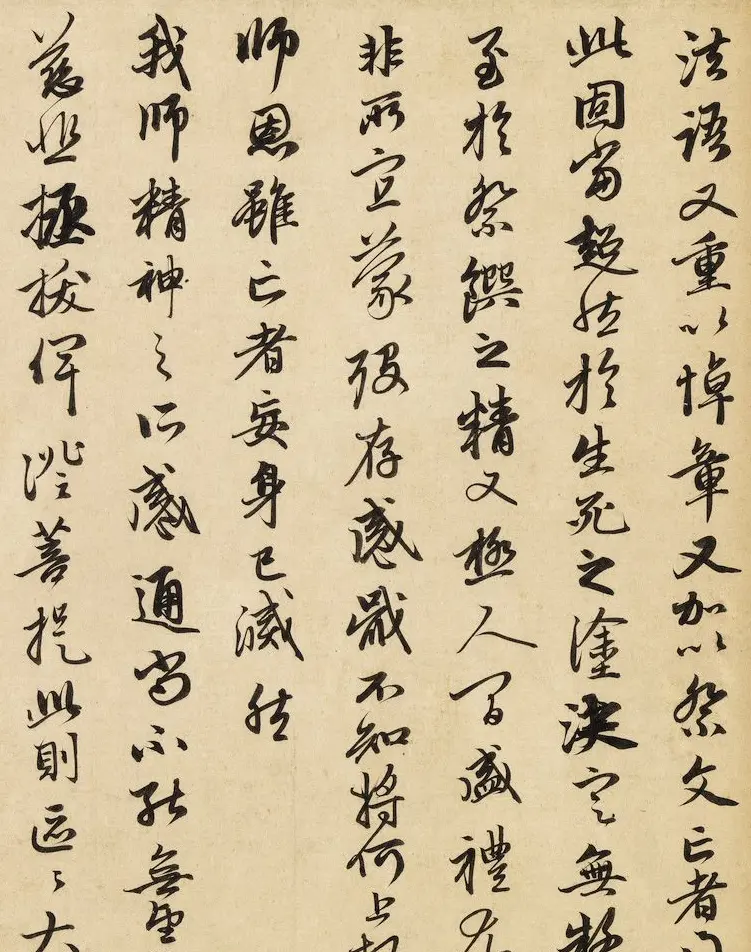 法語又重以悼章又加以祭文亡者
此固當超然於生死之塗決定無疑
至於祭饌之精又極人間盛禮尤
非所宜蒙歿存感戢不知將何上報
師恩雖亡者妄身已滅然
我師精神之所感通尚不能無望
慈悲拯拔俾證菩提此則區區大